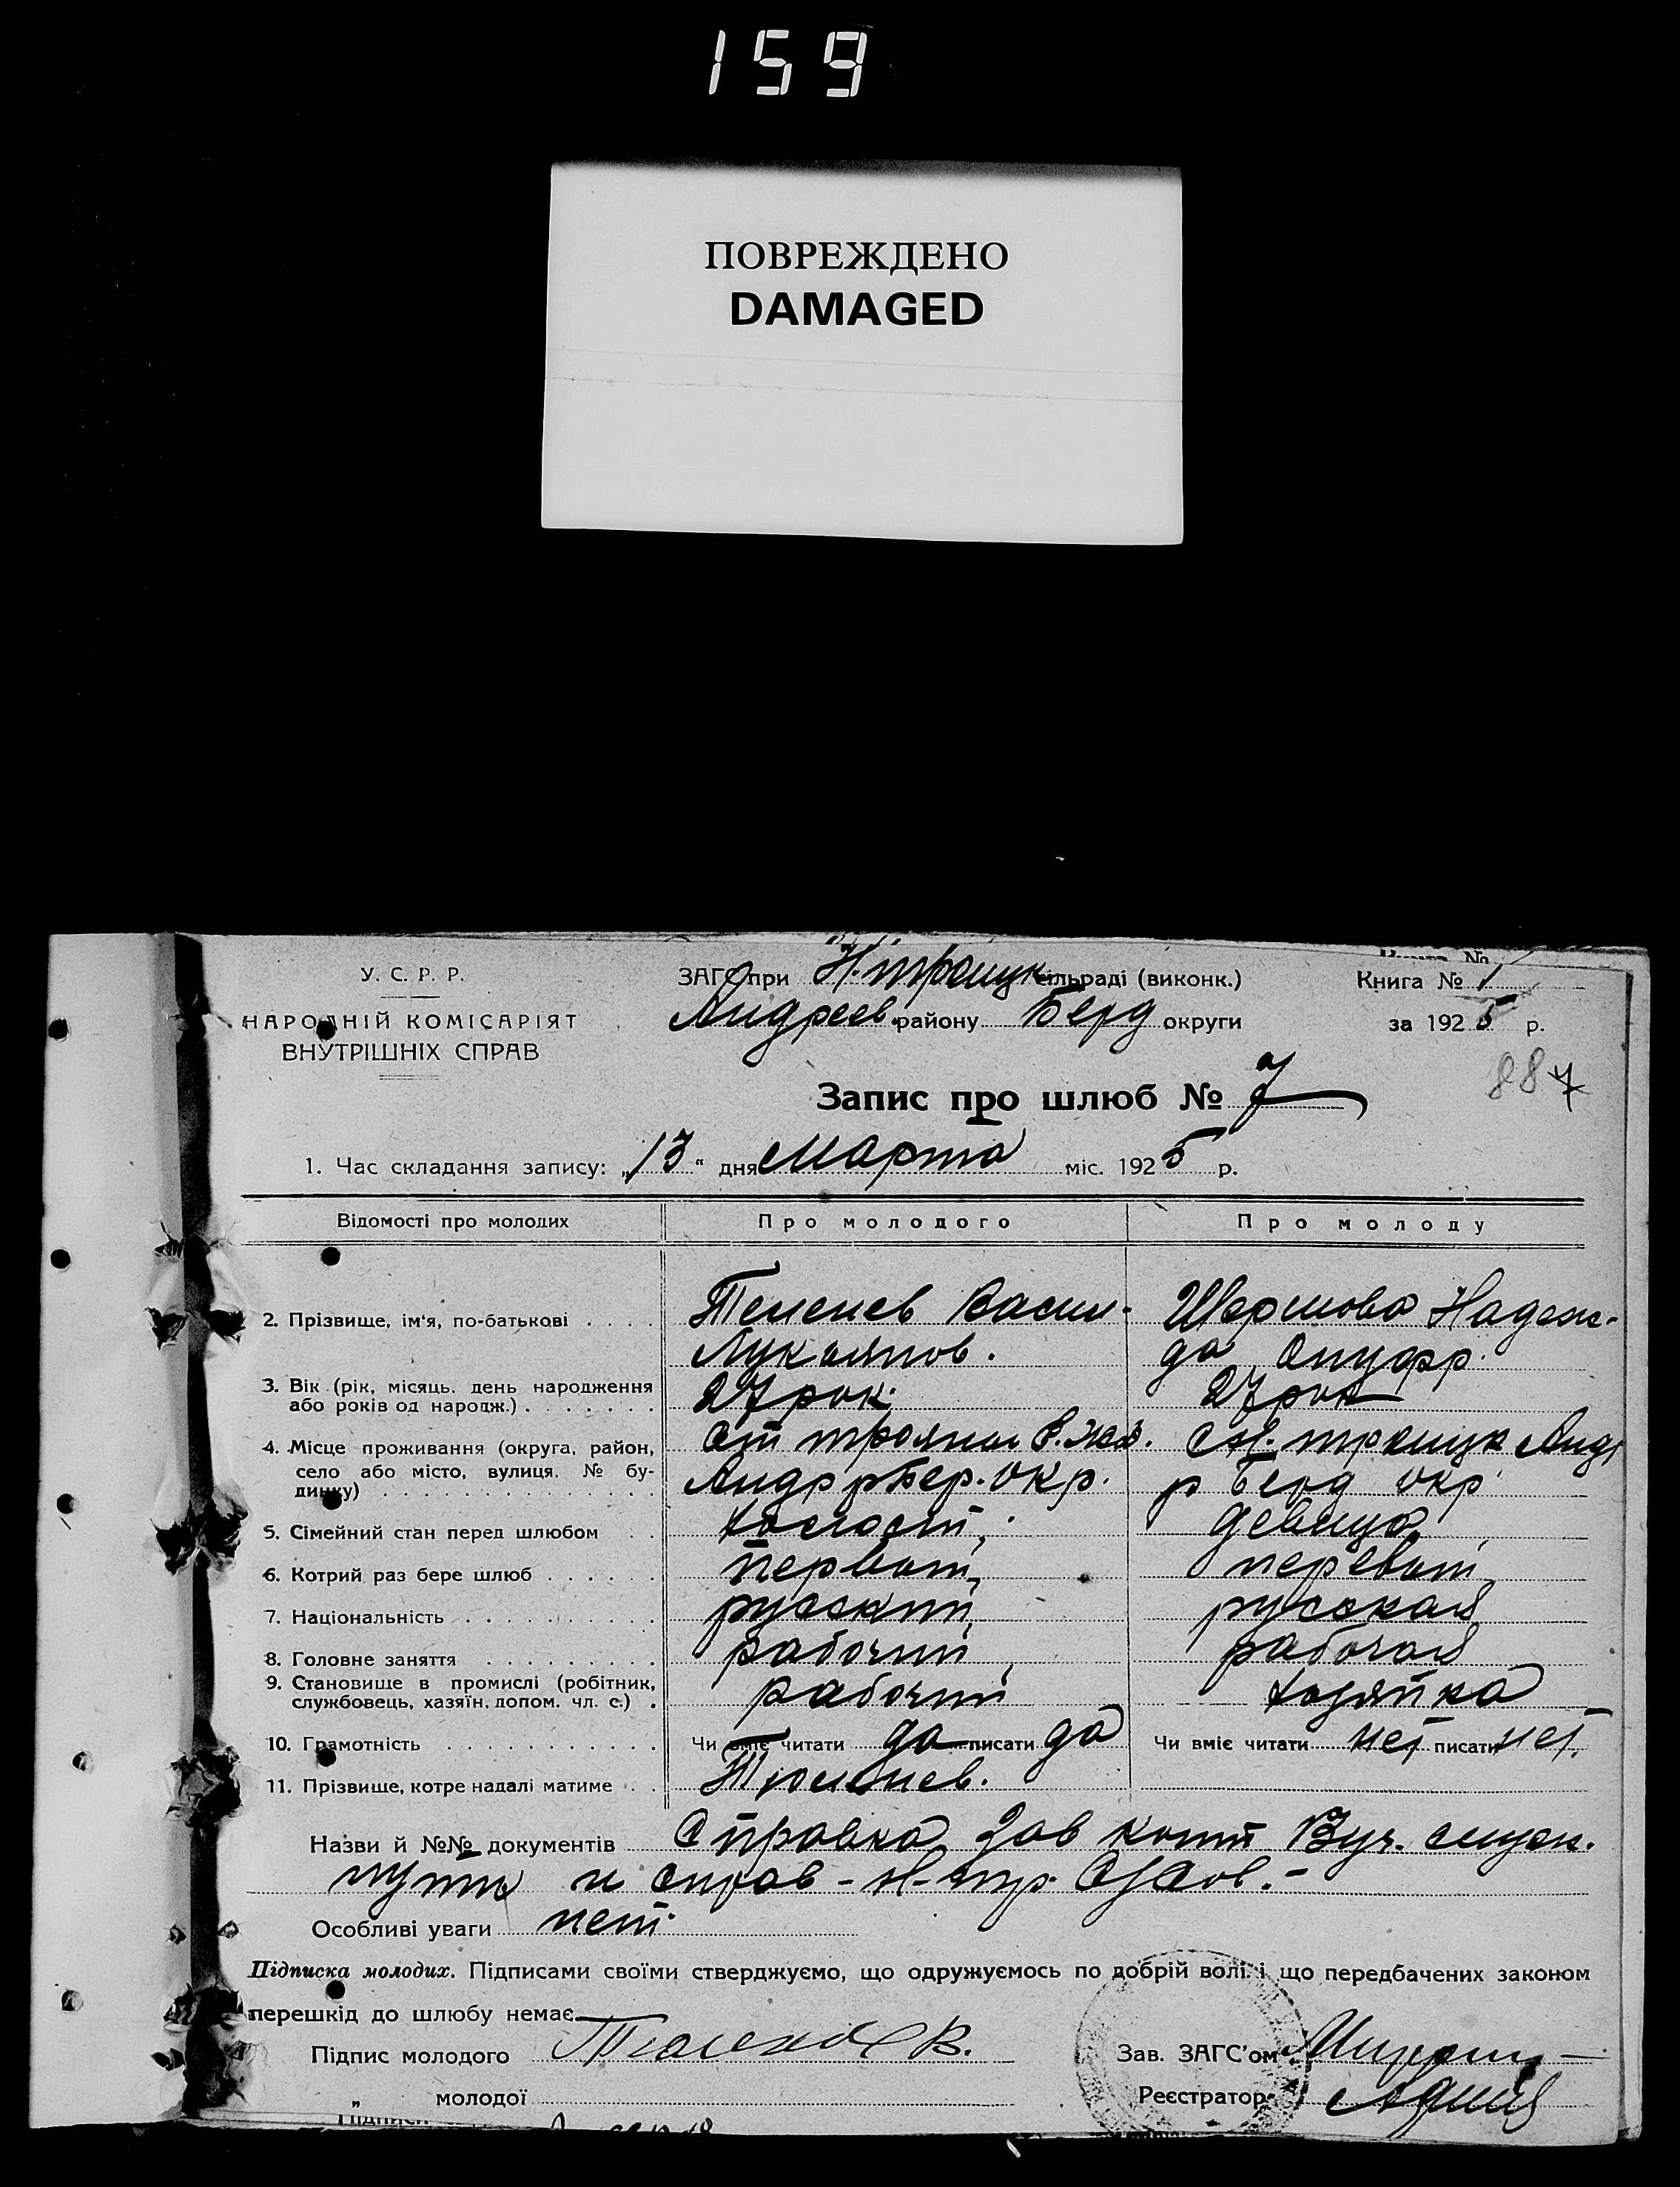 159
ПОВРЕЖДЕНО
DAMAGED
У. С. Р. Р.
НАРОДНІЙ КОМІСАРІЯТ
ВНУТРІШНІХ СПРАВ
ЗАГС при Н. троицк сільраді (виконк.)
Андреев. району Берд округи
Книга № 1
за 1925 р.
887
Запис про шлюб № 7
1. Час складання запису: „13“ дня марта міс. 1925 р.
Відомості про молодих Про молодого Про молоду
2. Прізвище, ім'я, по-батькові . . . . Васил. Надеж-
Лукьянов. да Онуфр.
3. Вік (рік, місяць, день народження 27 рок. 27 рок
або років од народж.) . . . . . . .
4. Місце проживання (округа, район, ст трояны С Н. троицк Андр
село або місто, вулиця, № бу- Андр р Бер. окр. р Берд окр.
динку) . . . . . . . . . . . . . .
5. Сімейний стан перед шлюбом . . холост, девица
6. Котрий раз бере шлюб . . . . . . первый, первый
7. Національність . . . . . . . . . . русский, русская
8. Головне заняття . . . . . . . . . рабочий, рабочая
9. Становище в промислі (робітник, рабочий хозяйка
службовець, хазяїн, допом. чл. с.) .
10. Грамотність . . . . . . . . . . . Чи вміє читати да писати да Чи вміє читати нет писати нет.
11. Прізвище, котре надалі матиме . .
Назви й №№ документів Справка Зав служ.
пути и справ - Н-тр.
Особливі уваги нет.
Підписка молодих. Підписами своїми стверджуємо, що одружуємось по добрій волі і що передбачених законом
перешкід до шлюбу немає
Підпис молодого
„ молодої
Зав. ЗАГС'ом
Реєстратор